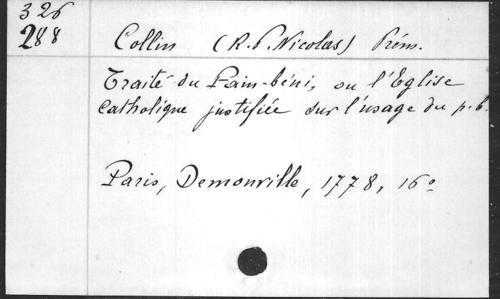 326
288
Collin (R. P. Nicolas) Prém.
Traité du Pain-béni, ou l'Eglise
catholique justifiée sur l'usage du p.b.
Paris, Demonville, 1778, 16º